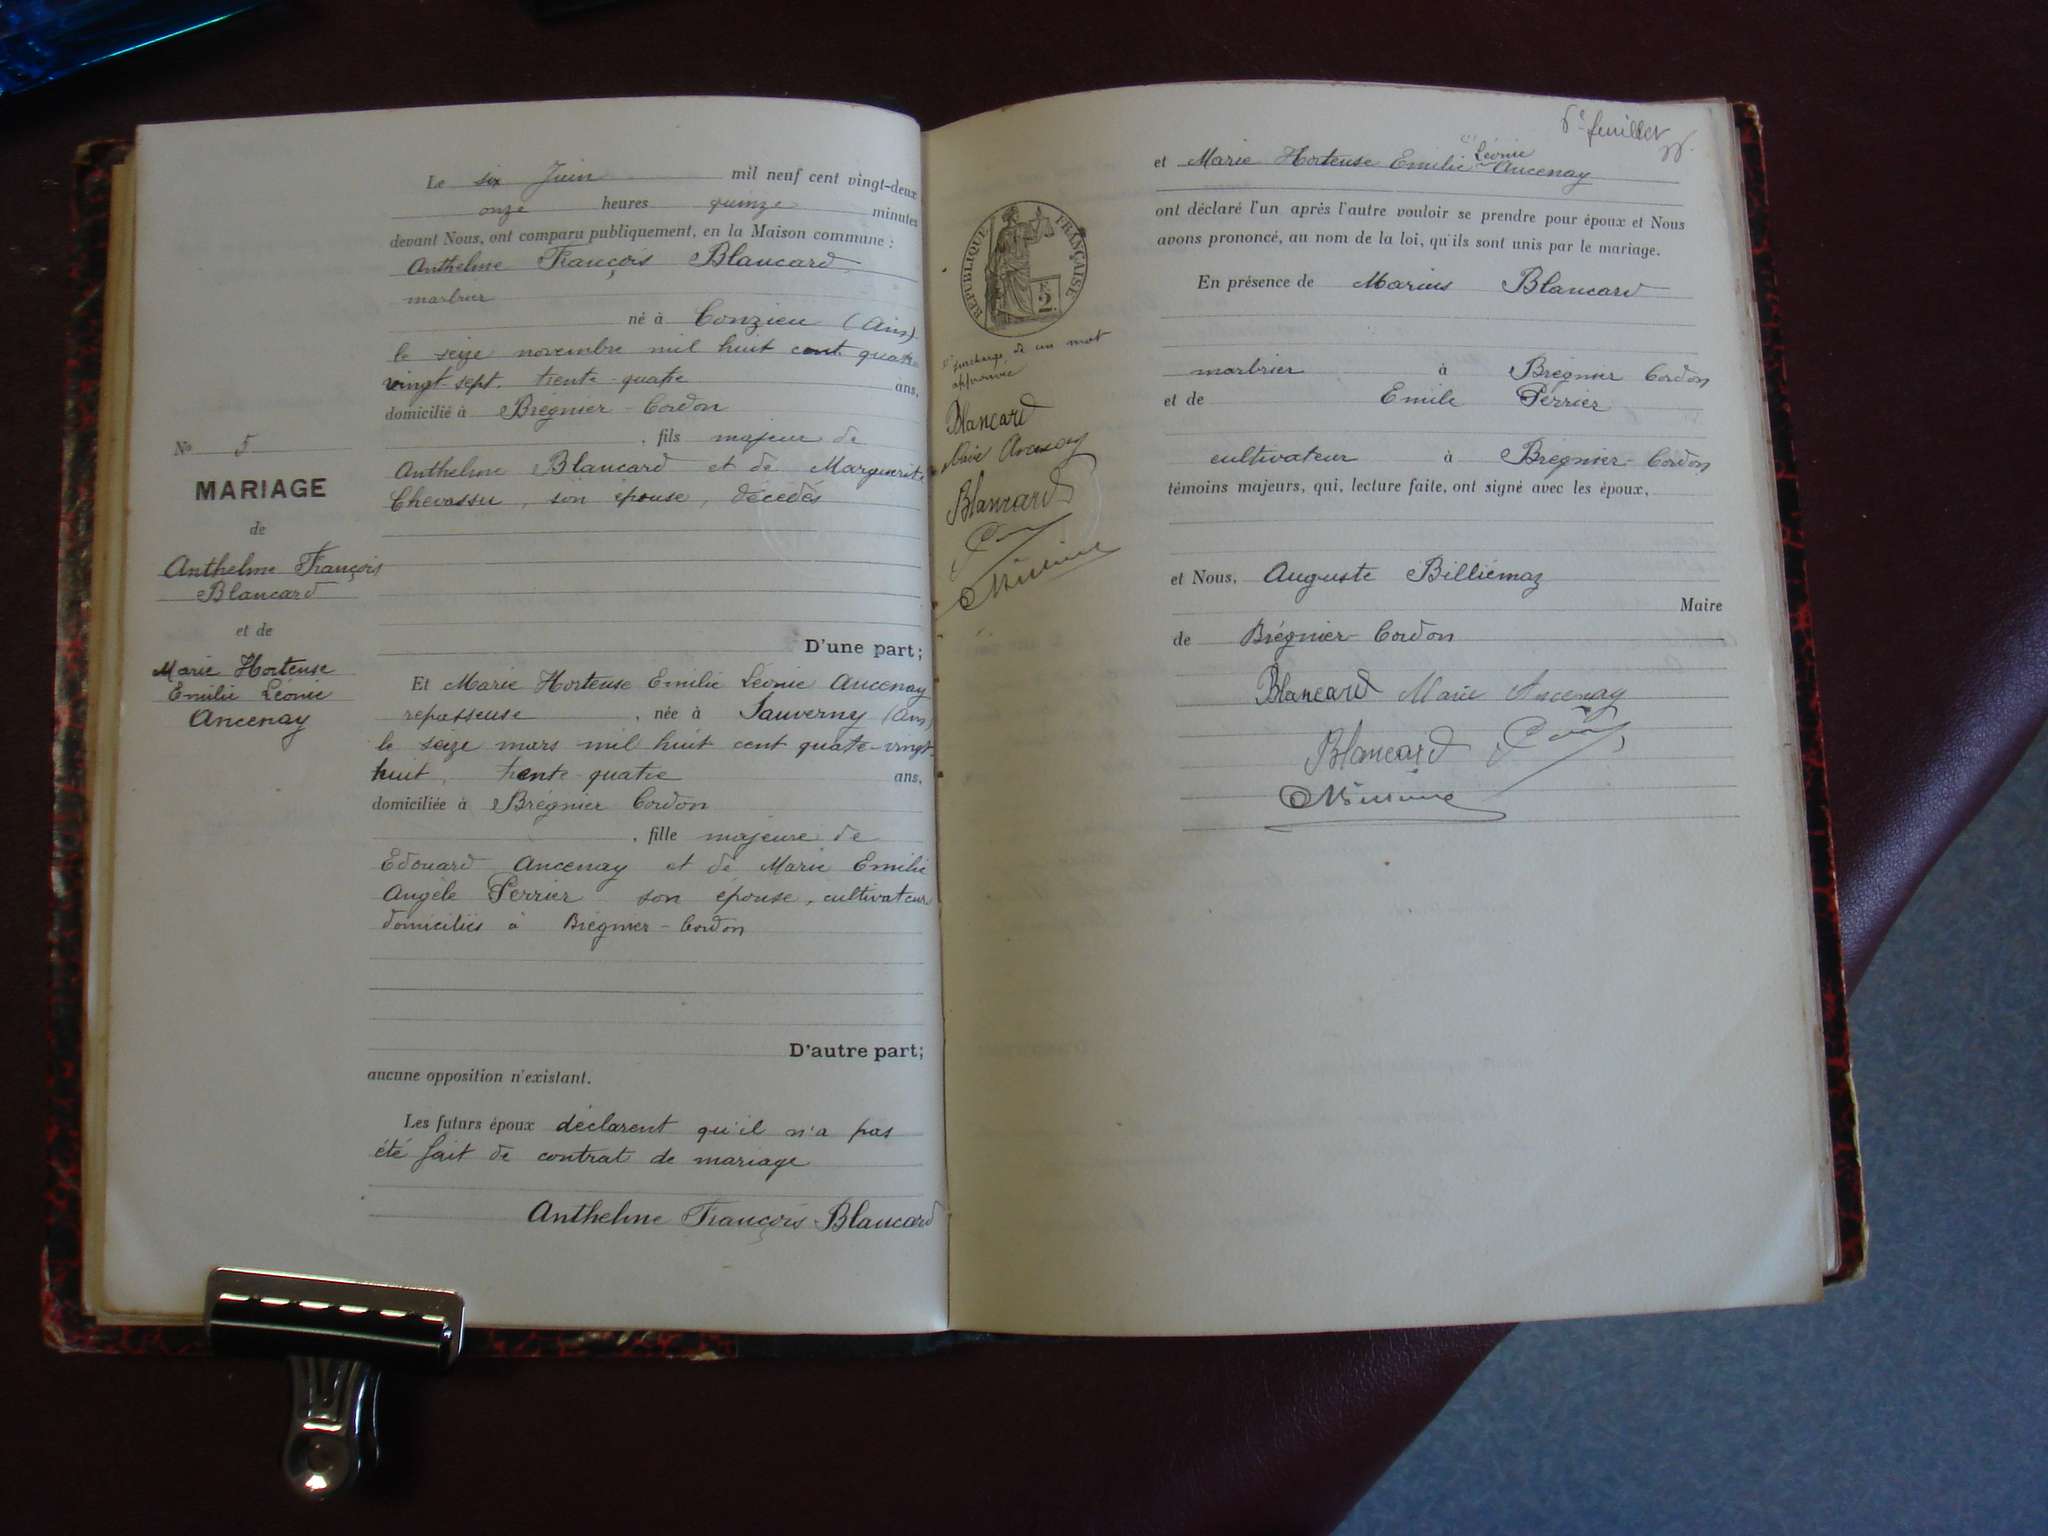 Le six Juin mil neuf cent vingt-deux
onze heures quinze minutes
devant Nous, ont comparu publiquement, en la Maison commune :
Anthelme François Blancard
marbrier
né à Conzieu (Ain)
le seize novembre mil huit cent quatre
vingt sept. trente-quatre ans,
domicilié à Brégnier-Cordon
, fils majeur de
Anthelme Blancard et de Marguerite
Chevassu, son épouse, décédés
D'une part;
Et Marie Hortense Emilie Léonie Ancenay
repasseuse, née à Sauverny (Ain)
le seize mars mil huit cent quatre-vingt
huit, trente-quatre ans,
domiciliée à Brégnier Cordon
, fille majeure de
Edouard Ancenay et de Marie Emilie
Angèle Perrier son épouse, cultivateurs
domiciliés à Brégnier-Cordon
D'autre part;
aucune opposition n'existant.
Les futurs époux déclarent qu'il n'a pas
été fait de contrat de mariage
Anthelme François Blancard
No 5
MARIAGE
de
Anthelme François
Blancard
et de
Marie Hortense
Emilie Léonie
Ancenay
6e feuillet
et Marie Hortense Emilie Léonie Ancenay
ont déclaré l'un après l'autre vouloir se prendre pour époux et Nous
avons prononcé, au nom de la loi, qu'ils sont unis par le mariage.
En présence de Marius Blancard
marbrier à Brégnier Cordon
et de Emile Perrier
cultivateur à Brégnier-Cordon
témoins majeurs, qui, lecture faite, ont signé avec les époux,
et Nous, Auguste Billiémaz
Maire
de Brégnier-Cordon
Blancard Marie Ancenay
Blancard
RÉPUBLIQUE FRANÇAISE
2
surcharge de un mot
approuvée
Blancard
Marie Ancenay
Blancard